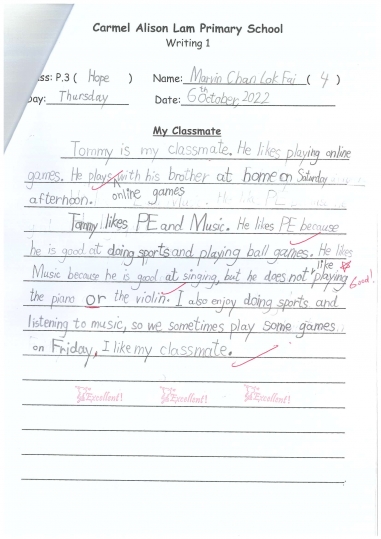 Carmel Alison Lam Primary School
Writing 1
ss: P.3 ( Hope ) Name: Marvin Chan Lok Fai ( 4 )
Day: Thursday Date: 6th October, 2022
My Classmate
Tommy is my classmate. He likes playing online
games. He plays with his brother at home on Saturday
afternoon. online games
Tommy likes PE and Music. He likes PE because
he is good at doing sports and playing ball games. He likes
like
Music because he is good at singing, but he does not playing Good!
the piano or the violin. I also enjoy doing sports and
listening to music, so we sometimes play some games
on Friday. I like my classmate.
Excellent! Excellent! Excellent!